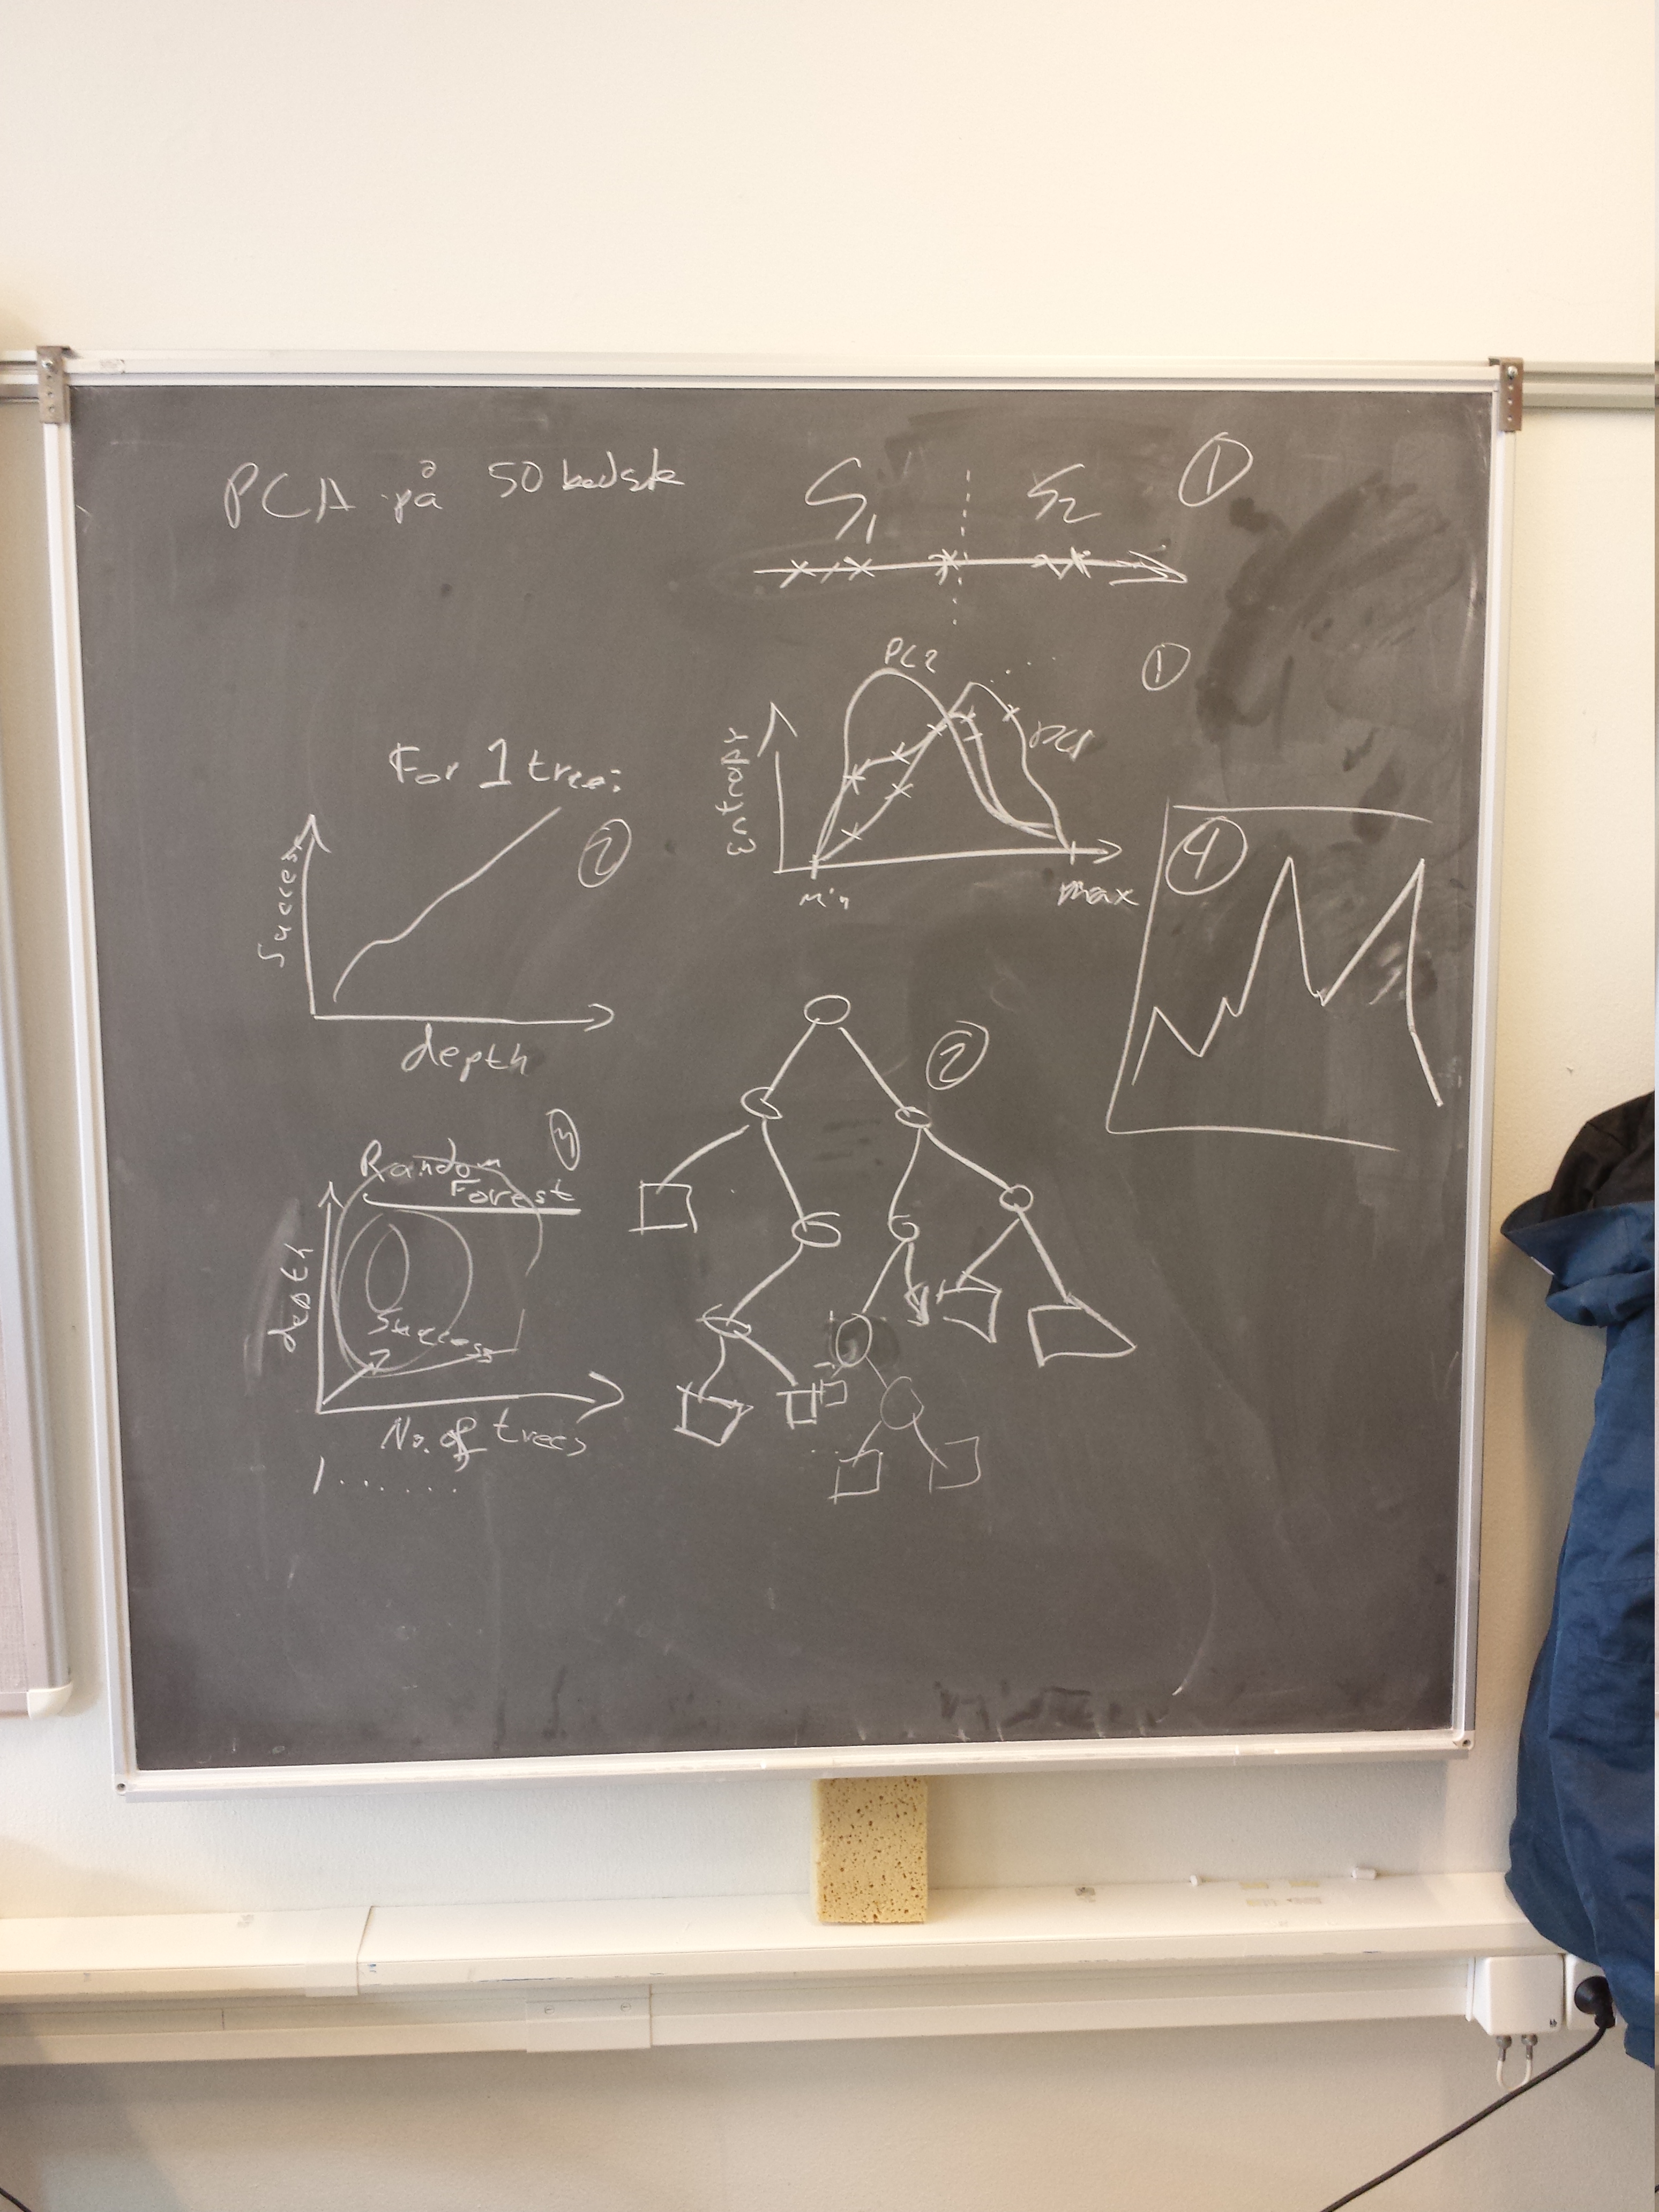 PCA på 50 bedste
S1 S2 ①
PC2 ....
①
Entropy
PC1
Min max
For 1 tree:
②
Success
depth
④
②
③
Random
Forest
depth
Success
No. of trees
1 .......